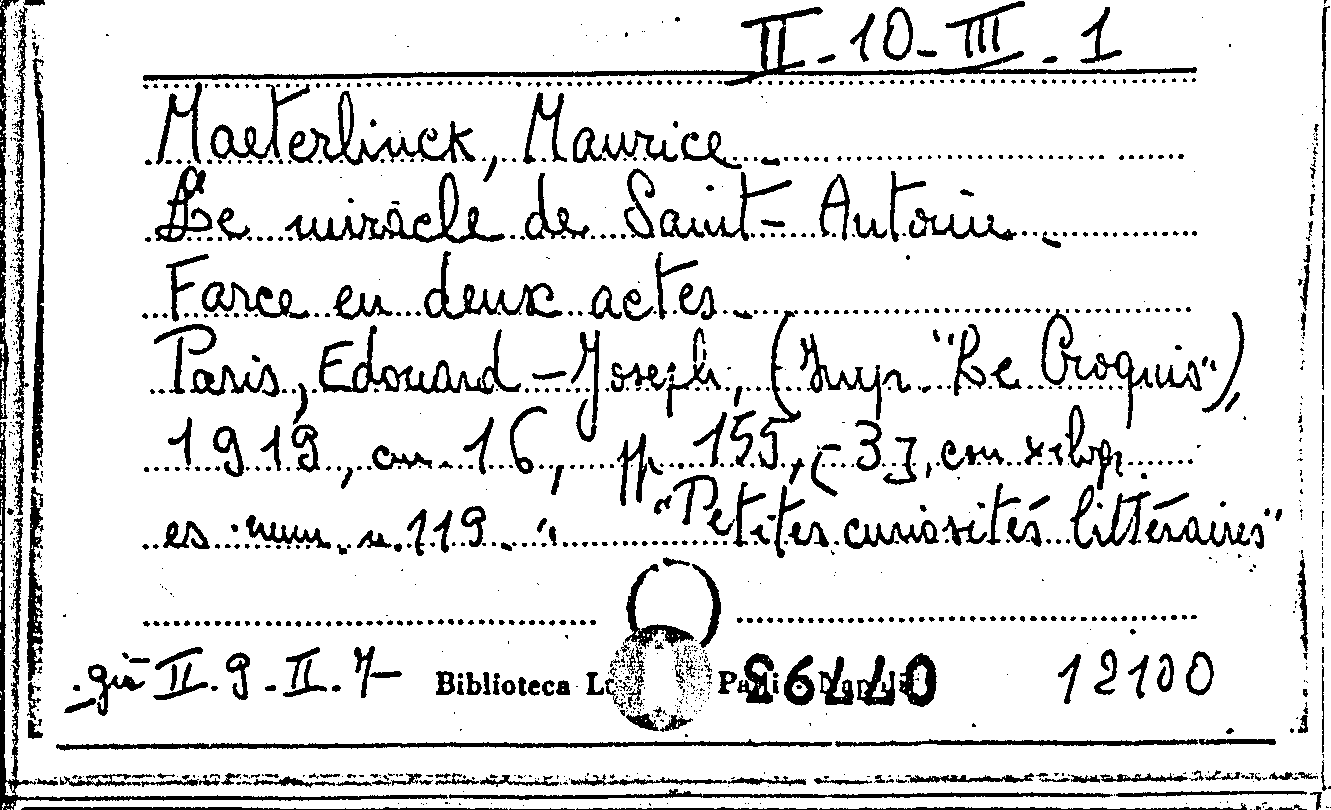 II-10-III.1
Maeterlinck, Maurice.
Le miracle de Saint-Antoine.
Farce en deux actes.
Paris, Edouard-Joseph, (Imp. "Le Croquis"),
1919, in. 16, pp. 155, [-3], con xilogr.
es. num. n. 119. "Petites curiosités littéraires"
già II.9.II.7
Biblioteca
077093
12100